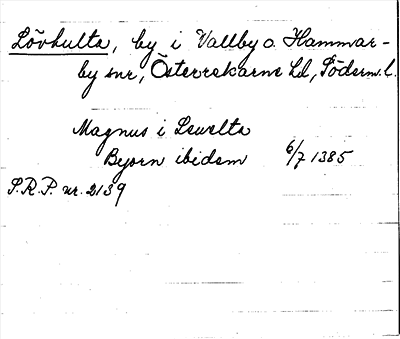 Lövhulta, by i Vallby o. Hammar-
by snr, Österrekarne hd, Söderm. l.
Magnus i Leuulta
Byorn ibidem 6/7 1385
S.R.P. nr. 2139